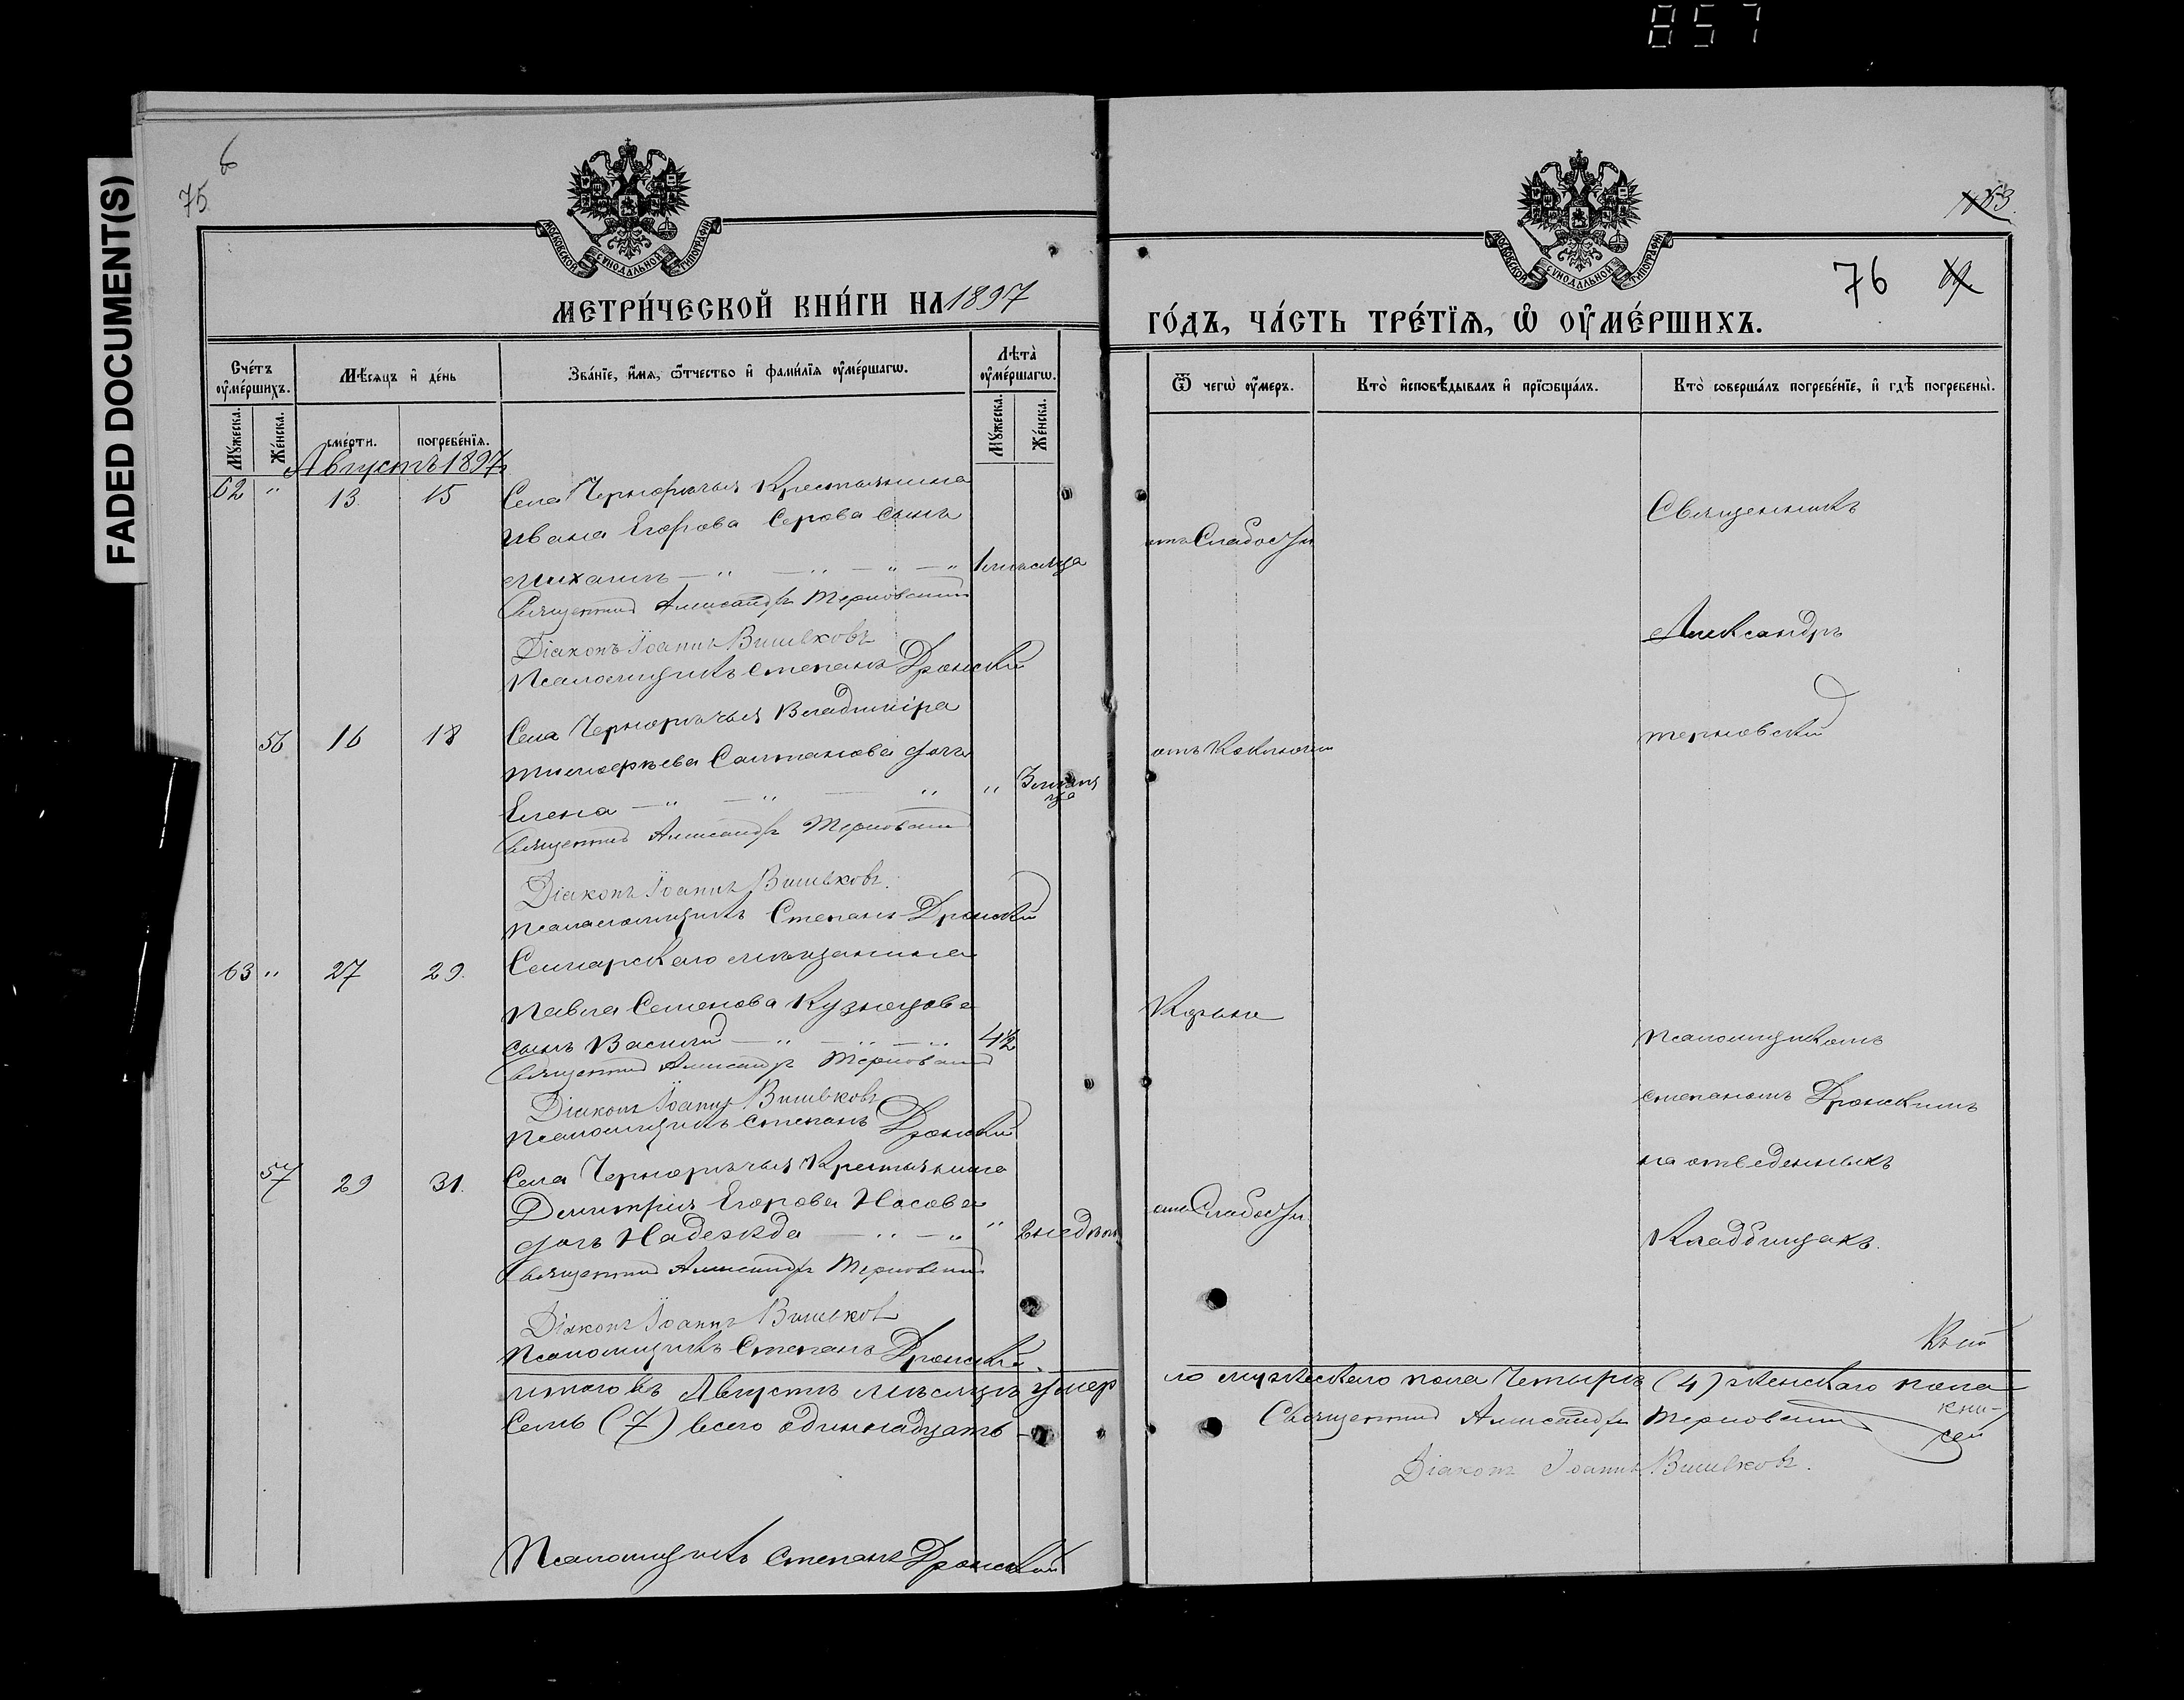 857
FADED DOCUMENT(S)
6
75
МОСКОВСКОЙ СѴНОДАЛЬНОЙ ТИПОГРАФІИ
МЕТРИ́ЧЕСКОЙ КНИ́ГИ НА 1897
Сче́тъ ᲂу҆ме́ршихъ.
Мꙋ́жеска.
Же́нска.
Мѣ́сяцъ и҆ де́нь
сме́рти.
погребе́нїѧ.
Зва́нїе, и҆́мѧ, ѻ҆́тчество и҆ фами́лїѧ ᲂу҆ме́ршагѡ.
Лѣта̀ ᲂу҆ме́ршагѡ.
Мꙋ́жеска.
Же́нска.
Августъ 1897
62 " 13 15 Села Чернорѣчья Крестьянина
Ивана Егорова Серова сынъ
Михаилъ — " — " — " — " 1 мѣсяца
Священникъ Александръ Терновскій
Діаконъ Іоаннъ Вишвковъ
Псаломщикъ Степанъ Дронскій
56 16 18 Села Чернорѣчья Владиміра
Тимофѣева Салтанова дочь
Елена — " — " — " " 3 мѣсяца
Священникъ Александръ Терновскій
Діаконъ Іоаннъ Вишвковъ.
Псаломщикъ Степанъ Дронскій
63 " 27 29. Самарскаго мѣщанина
Павла Семенова Кузнецова
сынъ Василий — " — " — " 4½
Священникъ Александръ Терновскій
Діаконъ Іоаннъ Вишвковъ
Псаломщикъ Степанъ Дронскій
57 29 31. Села Чернорѣчья Крестьянина
Димитрія Егорова Носова
дочь Надежда — " — " " 2 недѣли
Священникъ Александръ Терновскій
Діаконъ Іоаннъ Вишвковъ
Псаломщикъ Степанъ Дронскій.
Итого въ Августѣ мѣсяцѣ умер
Семь (7) всего одиннадцать —
Псаломщикъ Степанъ Дронскій
153
МОСКОВСКОЙ СѴНОДАЛЬНОЙ ТИПОГРАФІИ
76
69
ГО́ДЪ, ЧА́СТЬ ТРЕ́ТЇѦ, Ѡ҆ ОУ҆МЕ́РШИХЪ.
Ѿ чегѡ̀ ᲂу҆́меръ.
Кто̀ и҆сповѣ́дывалъ и҆ прїѡбща́лъ.
Кто̀ соверша́лъ погребе́нїе, и҆ гдѣ̀ погребены̀.
Священникъ
отъ Слабости
Александръ
Терновскій
отъ Коклюши
Корью
Псаломщикомъ
Степаномъ Дронскимъ
на отведенныхъ
отъ Слабости
Кладбищахъ.
ло мужескаго пола Четыре (4) женскаго пола
кни-
Священникъ Александръ Терновскій
сей
Діаконъ Іоаннъ Вишвковъ.